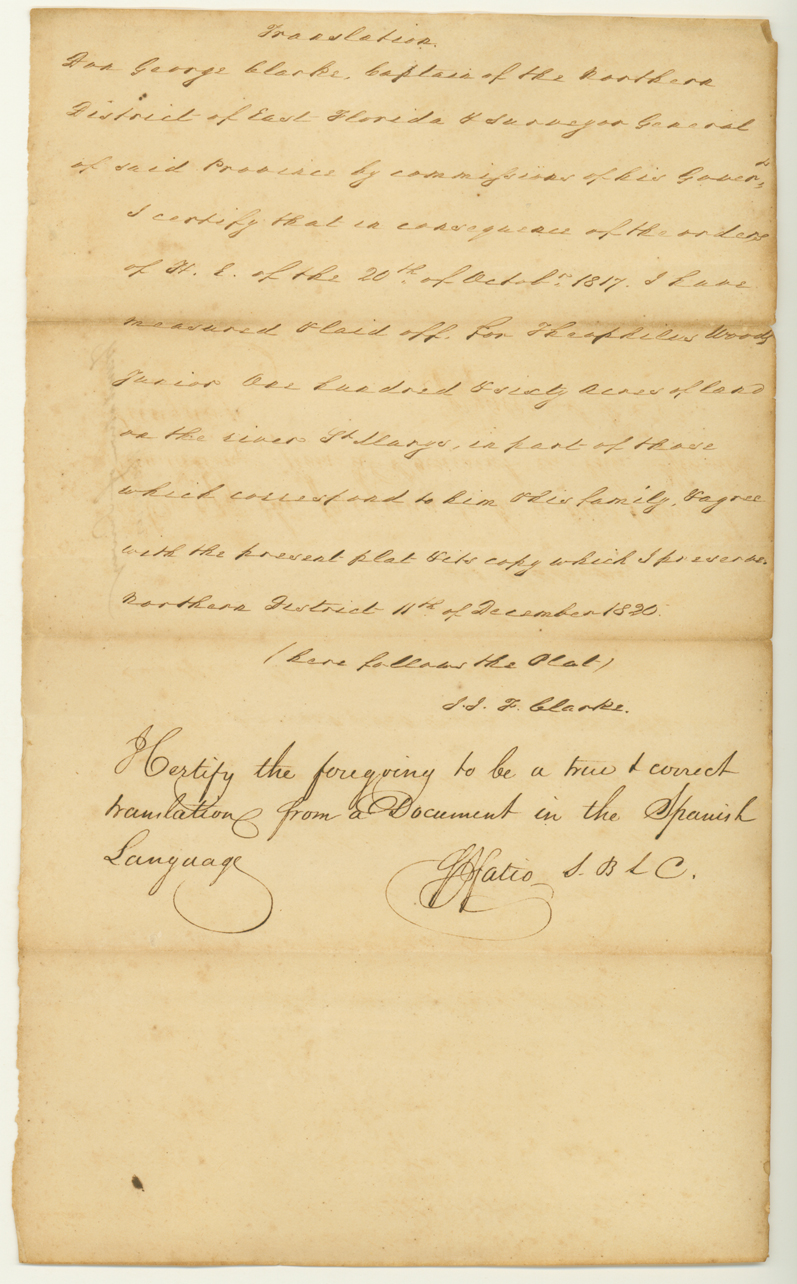 Translation.
Don George Clarke, Captain of the Northern
District of East Florida & Surveyor General
of said Province by commissions of his Govern^r,
I certify that in consequence of the orders
of H. E. of the 20^th of Octob^r. 1817. I have
measured & laid off, for Theophilus Woods
Junior One hundred & sixty Acres of land
on the river S^t Marys, in part of those
which correspond to him & his family, & agree
with the present plat & its copy which I preserve.
Northern District 11^th of December 1820.
(here follows the Plat)
J. J. F. Clarke.
I Certify the foregoing to be a true & correct
translation from a Document in the Spanish
Language
S. B L C.